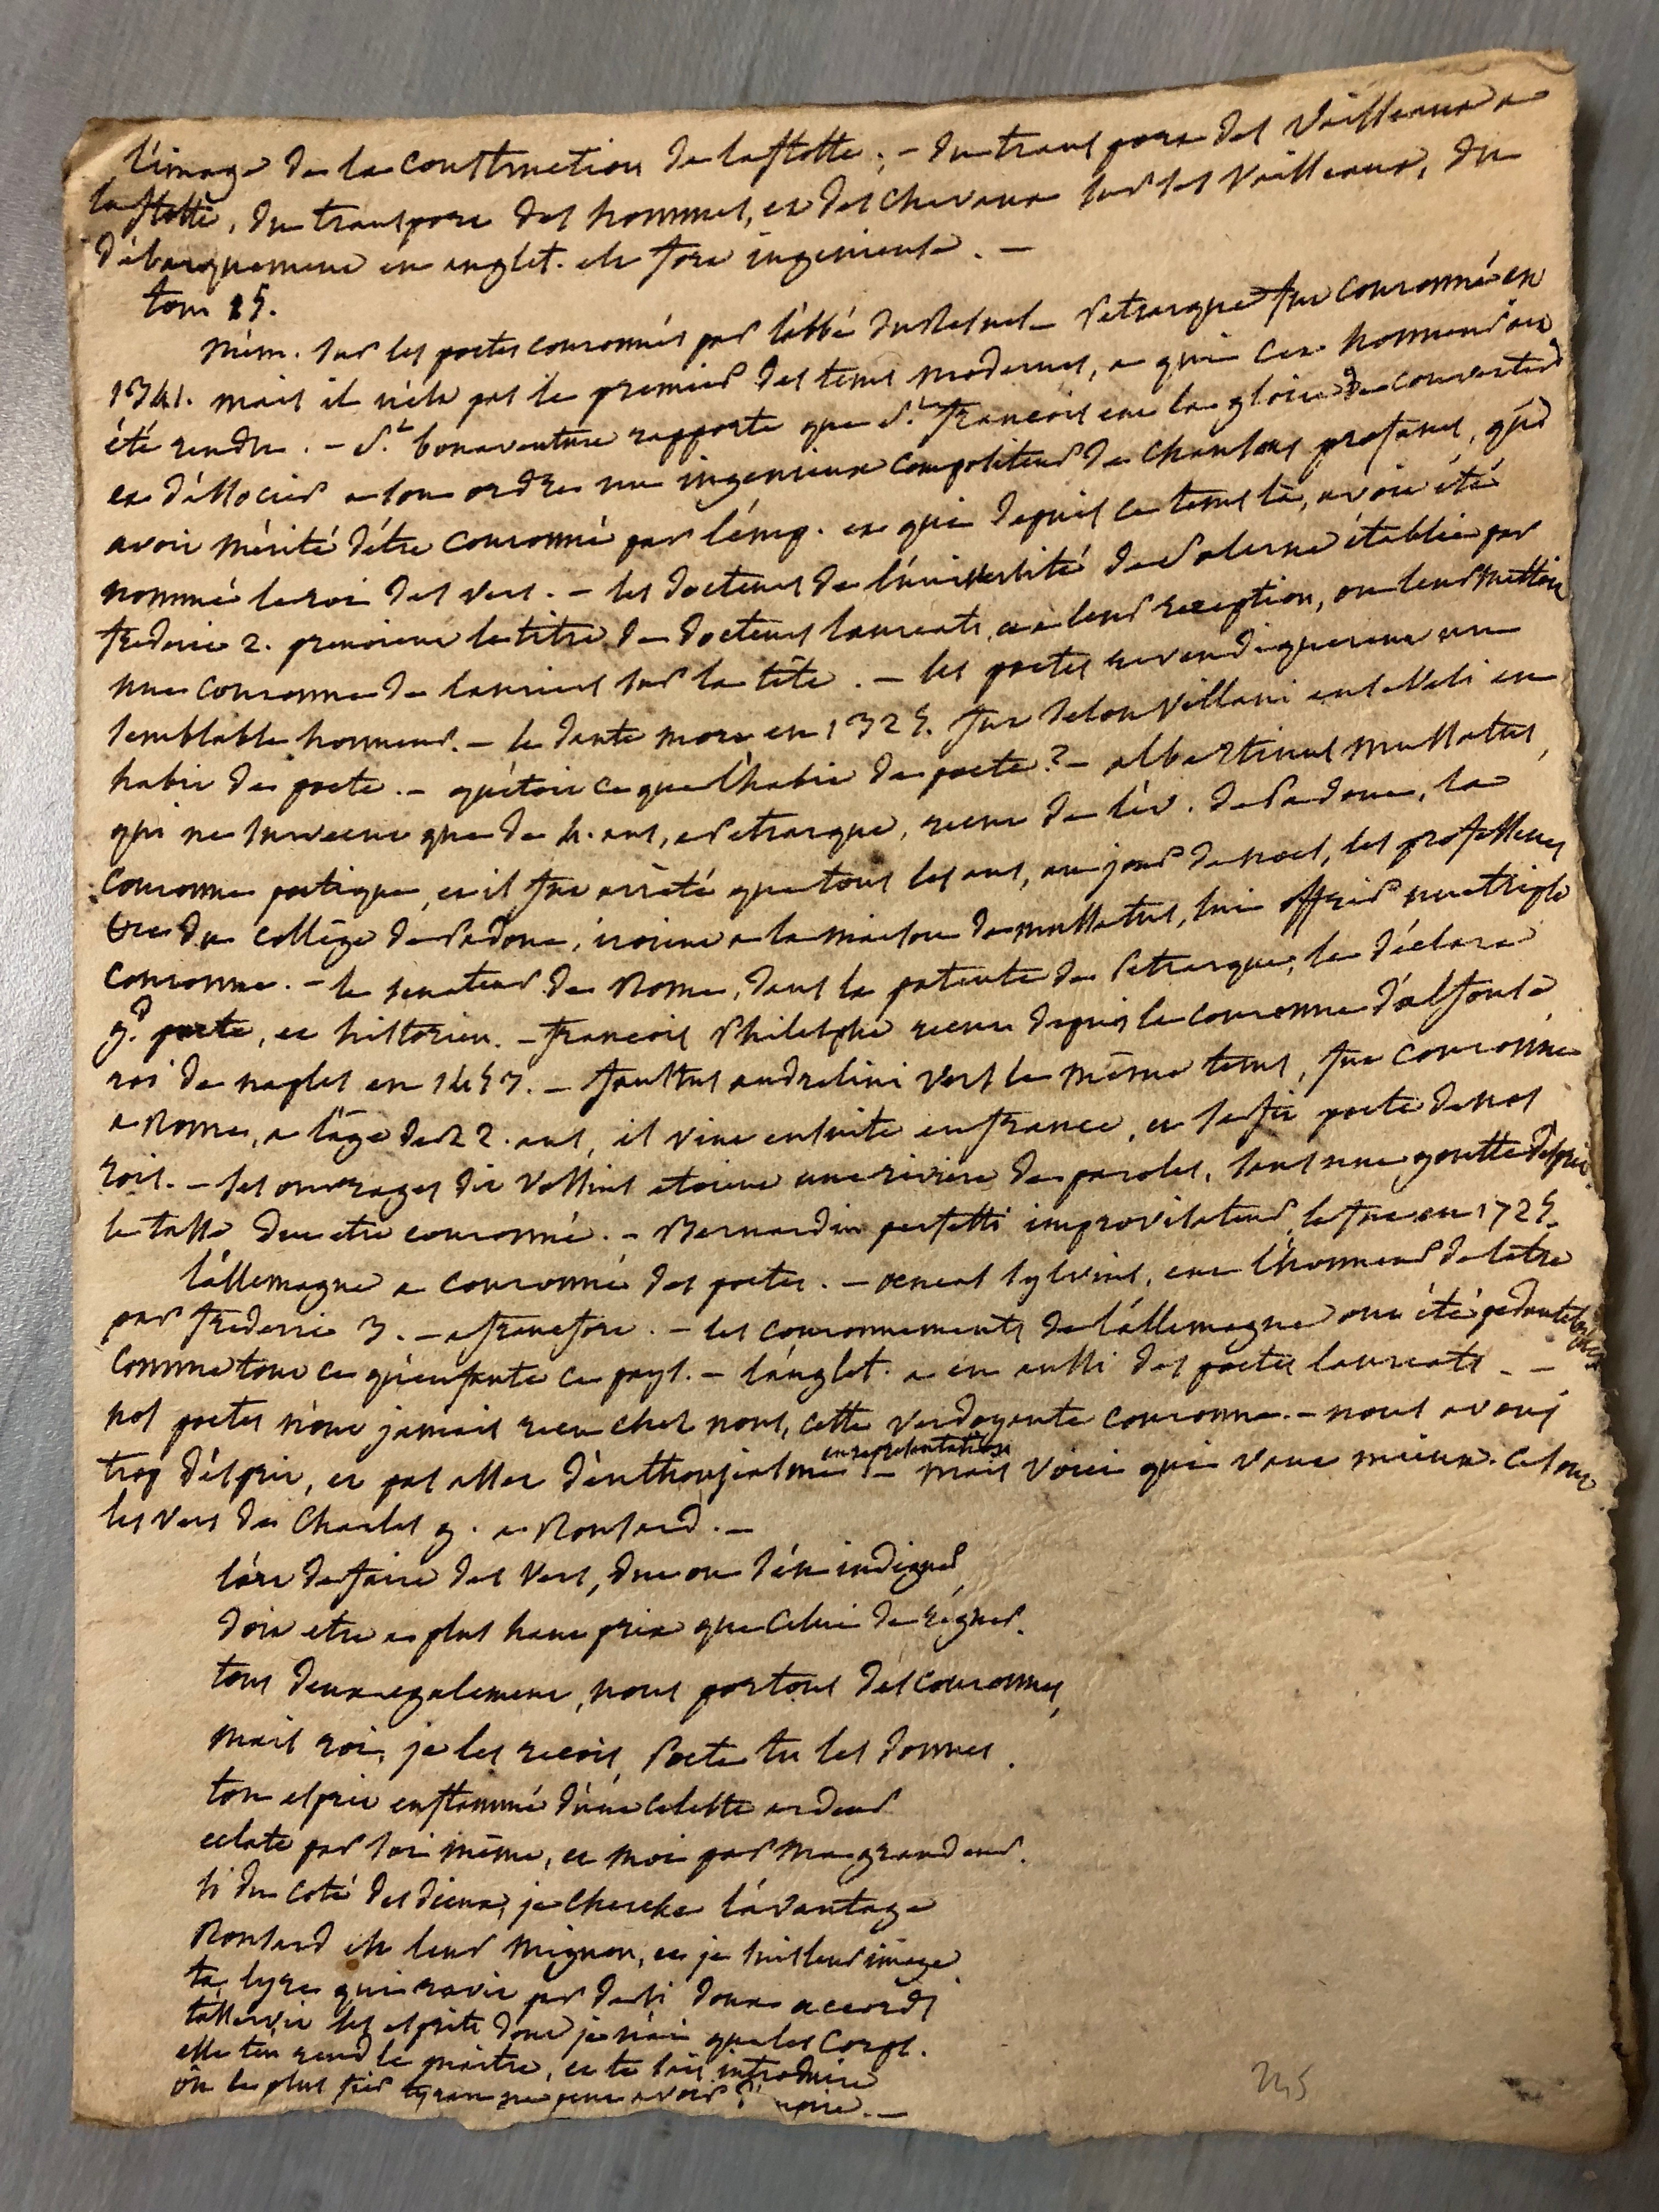 l'image de la construction de la flotte. – du transport des vaisseaux a
la flotte, du transport des hommes, et des chevaux sur les vaisseaux, du
débarquement en anglet. est fort ingenieuse. –
tom 15.
Mém. sur les poetes couronnés par l'abbé du Resnel – Petrarque fut couronné en
1341. mais il n'est pas le premier des tems modernes, a qui cet honneur ait
été rendu. – St. bonaventure rapporte que St. francois eut la gloire de convertir
et d'associer a son ordre un ingenieux compositeur de chansons profanes, qui
avoit mérité d'être couronné par l'emp. et qui depuis ce tems là, avoit été
nommé le roi des vers. – les docteurs de l'université de Salerne établie par
frederic 2. prenoient le titre de docteurs laureats, et a leur reception, on leur mettoit
une couronne de lauriers sur la tête. – les poetes revendiquerent un
semblable honneur. – le dante mort en 1325. fut selon Villani enseveli en
habit de poete. – qu'étoit ce que l'habit de poete? – albertinus mussatus,
qui ne survecut que de 4. ans, a Petrarque, recut de l'év. de Padoue, la
couronne poetique, et il fut arrêté que tous les ans, au jour de noel, les professeurs
du collège de Padoue, iroient a la maison de mussatus, lui offrir une triple
couronne. – le senateur de Rome, dans la patente de Petrarque, le déclara
gd. poete, et historien. – francois Philelphe recut depuis la couronne d'alfonse
roi de naples en 1453. – faustus andrelini vers le même tems, fut couronné
a Rome, a l'âge de 22. ans, il vint ensuite en france, et se fit poete de nos
rois. – ses ouvrages dit Vossius etoient une riviere de paroles, sans une goutte d'esprit.
le tasse dut etre couronné. – Bernardin perfetti improvisateur, le fut en 1725.
l'allemagne a couronné des poetes. – aeneas sylvius, eut l'honneur de l'etre
par frederic 3. – a francfort. – les couronnements de l'allemagne ont été pedantesques
comme tout ce qu'enfante ce pays. – l'anglet. a eu aussi des poetes laureats. –
nos poetes n'ont jamais recu chez nous, cette verdoyante couronne. – nous avons
trop d'esprit, et pas assez d'enthousiasme en representation – mais voici qui vaut mieux. ce sont
les vers de Charles 9. a Ronsard. –
l'art de faire des vers, dut on s'en indigner,
doit etre a plus haut prix que celui de régner.
tous deux egalement, nous portons des couronnes,
mais roi, je les recois, Poete tu les donnes.
ton esprit enflammé d'une celeste ardeur
eclate par soi même, et moi par ma grandeur.
si du coté des dieux, je cherche l'avantage
Ronsard est leur mignon, et je suis leur image.
ta lyre qui ravit par de si doux accords
t'asservit les esprits dont je n'ai que les corps.
elle t'en rend le maitre, et te sait introduire
où le plus fier tyran ne peut avoir